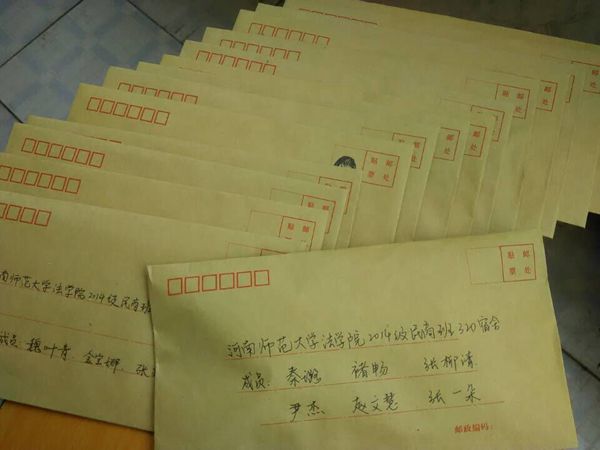 贴邮
票处
贴邮
票处
贴邮
票处
南师范大学法学院2014级民商班
成员 魏叶青 金宝娜 张
贴邮
票处
河南师范大学法学院2014级民商班320宿舍
成员: 秦璐 褚畅 张柳清
尹杰 赵文慧 张一朵
邮政编码: